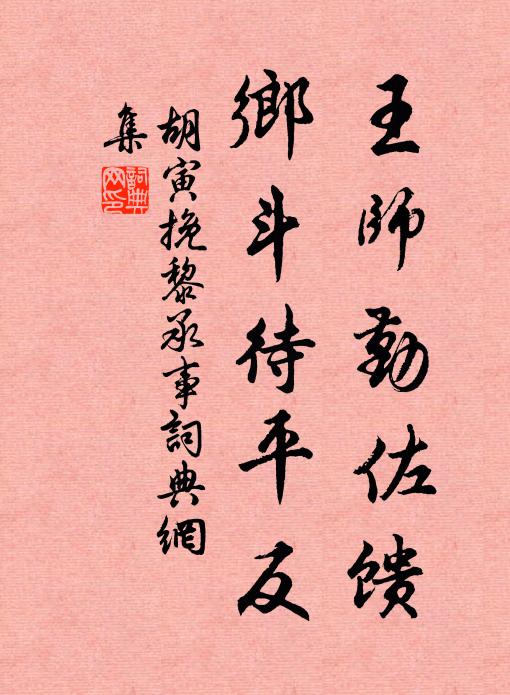 王師勤佐饋
鄉斗待平反
胡寅挽黎承事詞典網
集
詞典網印